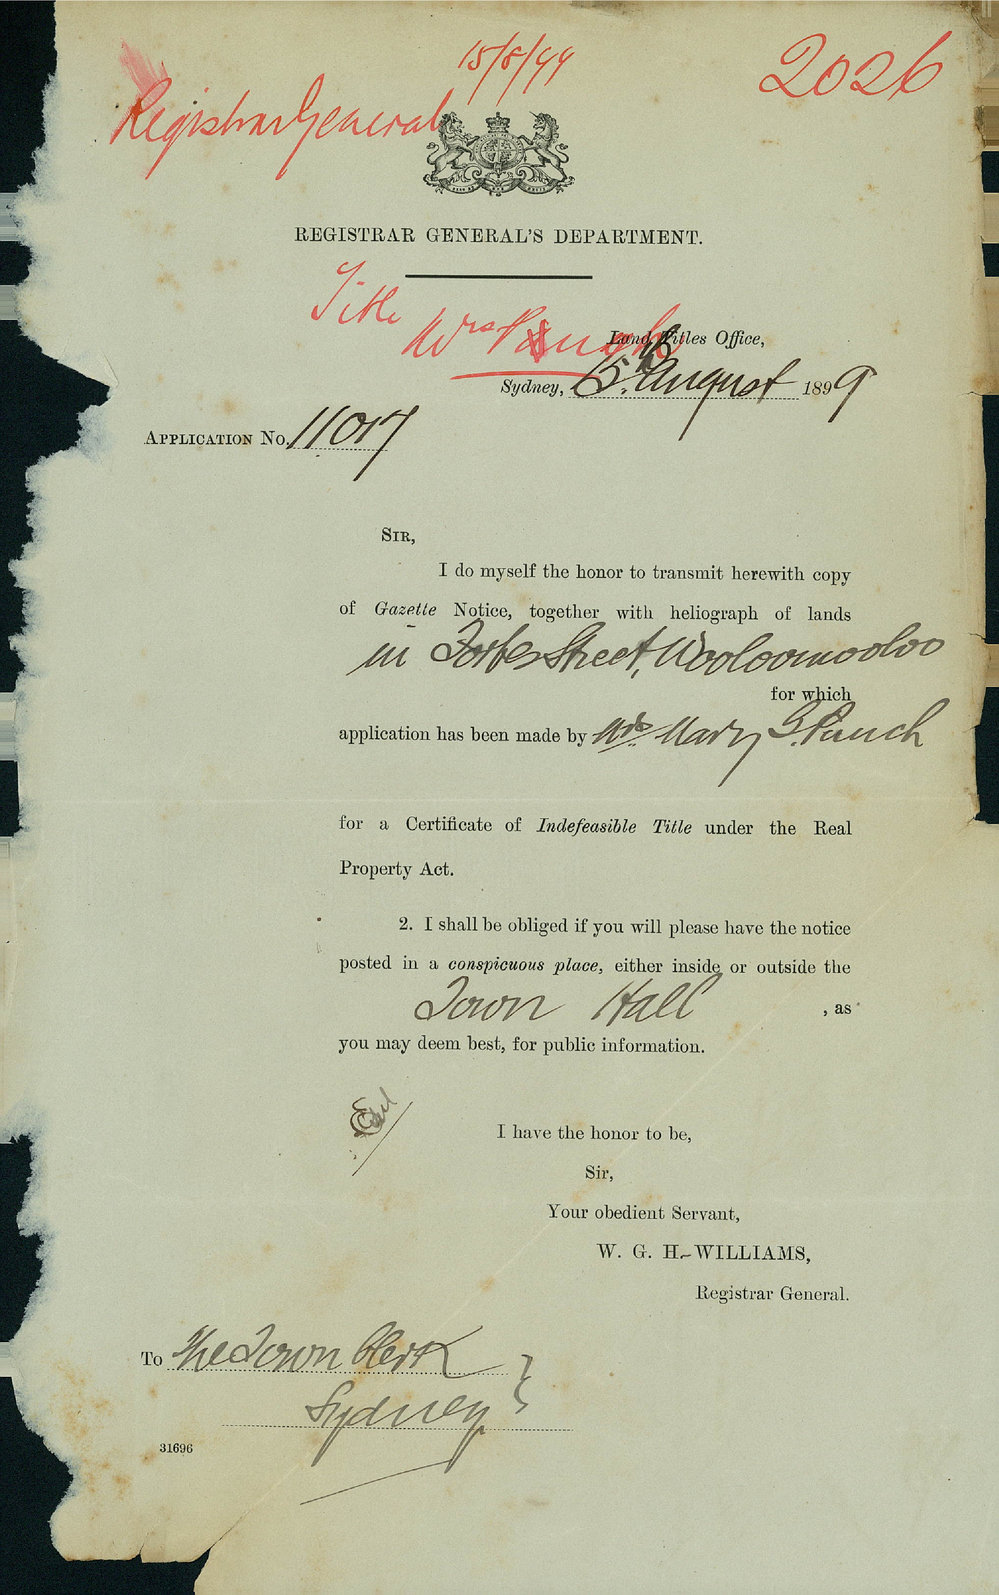 15/8/99
2026
Registrar General
REGISTRAR GENERAL'S DEPARTMENT.
Title
Mrs
Land Titles Office,
Sydney, 15 August 1899
APPLICATION No. 11017
SIR,
I do myself the honor to transmit herewith copy
of Gazette Notice, together with heliograph of lands
in Forbes Street, Wooloomooloo
for which
application has been made by Mrs. Mary G. Punch
for a Certificate of Indefeasible Title under the Real
Property Act.
2. I shall be obliged if you will please have the notice
posted in a conspicuous place, either inside or outside the
Town Hall , as
you may deem best, for public information.
I have the honor to be,
Sir,
Your obedient Servant,
W. G. H. WILLIAMS,
Registrar General.
To The Town Clerk
Sydney
31696